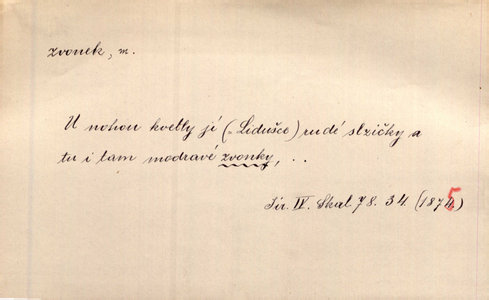 zvonek, m.
U nohou kvetly jí (= Lidušce) rudé slzičky a
tu i tam modravé zvonky, ..
Jir. IV. Skal 78. 34. (1875)